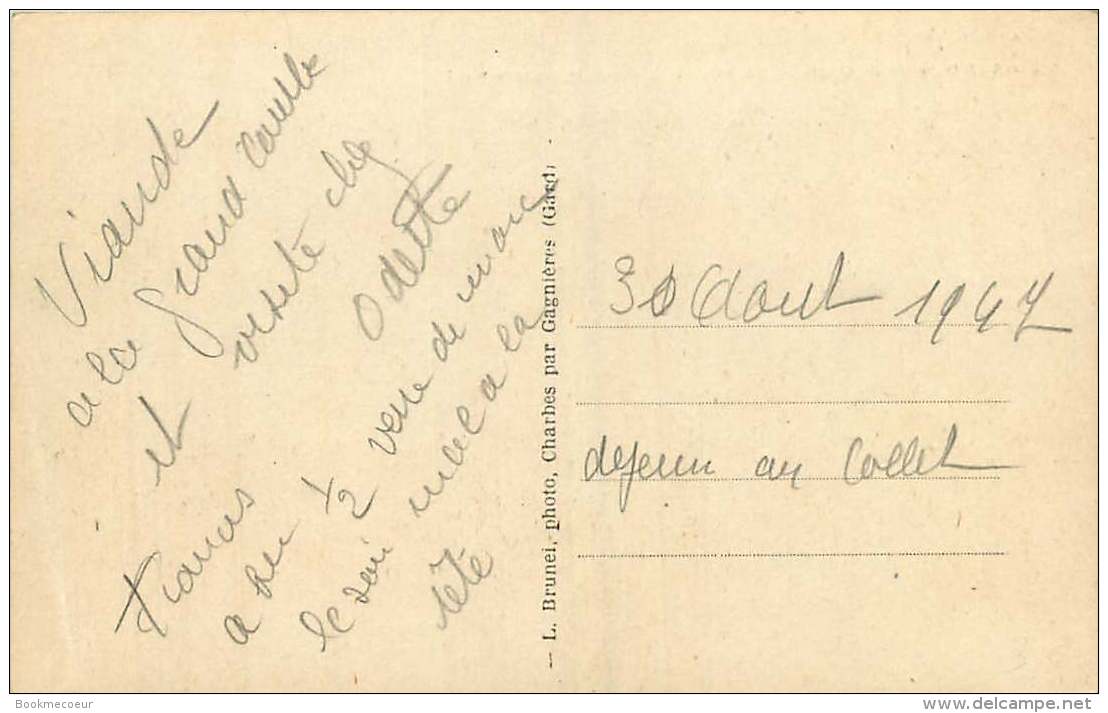 Viande
a la Grand Combe
et visite chez
Odette
Francis
a bu 1/2 verre de marc
le soir mal a la
tête
L. Brunel, photo, Charbes par Gagnières (Gard)
Aout 1947
dejeun au Collet
Bookmecoeur
delcampe.net